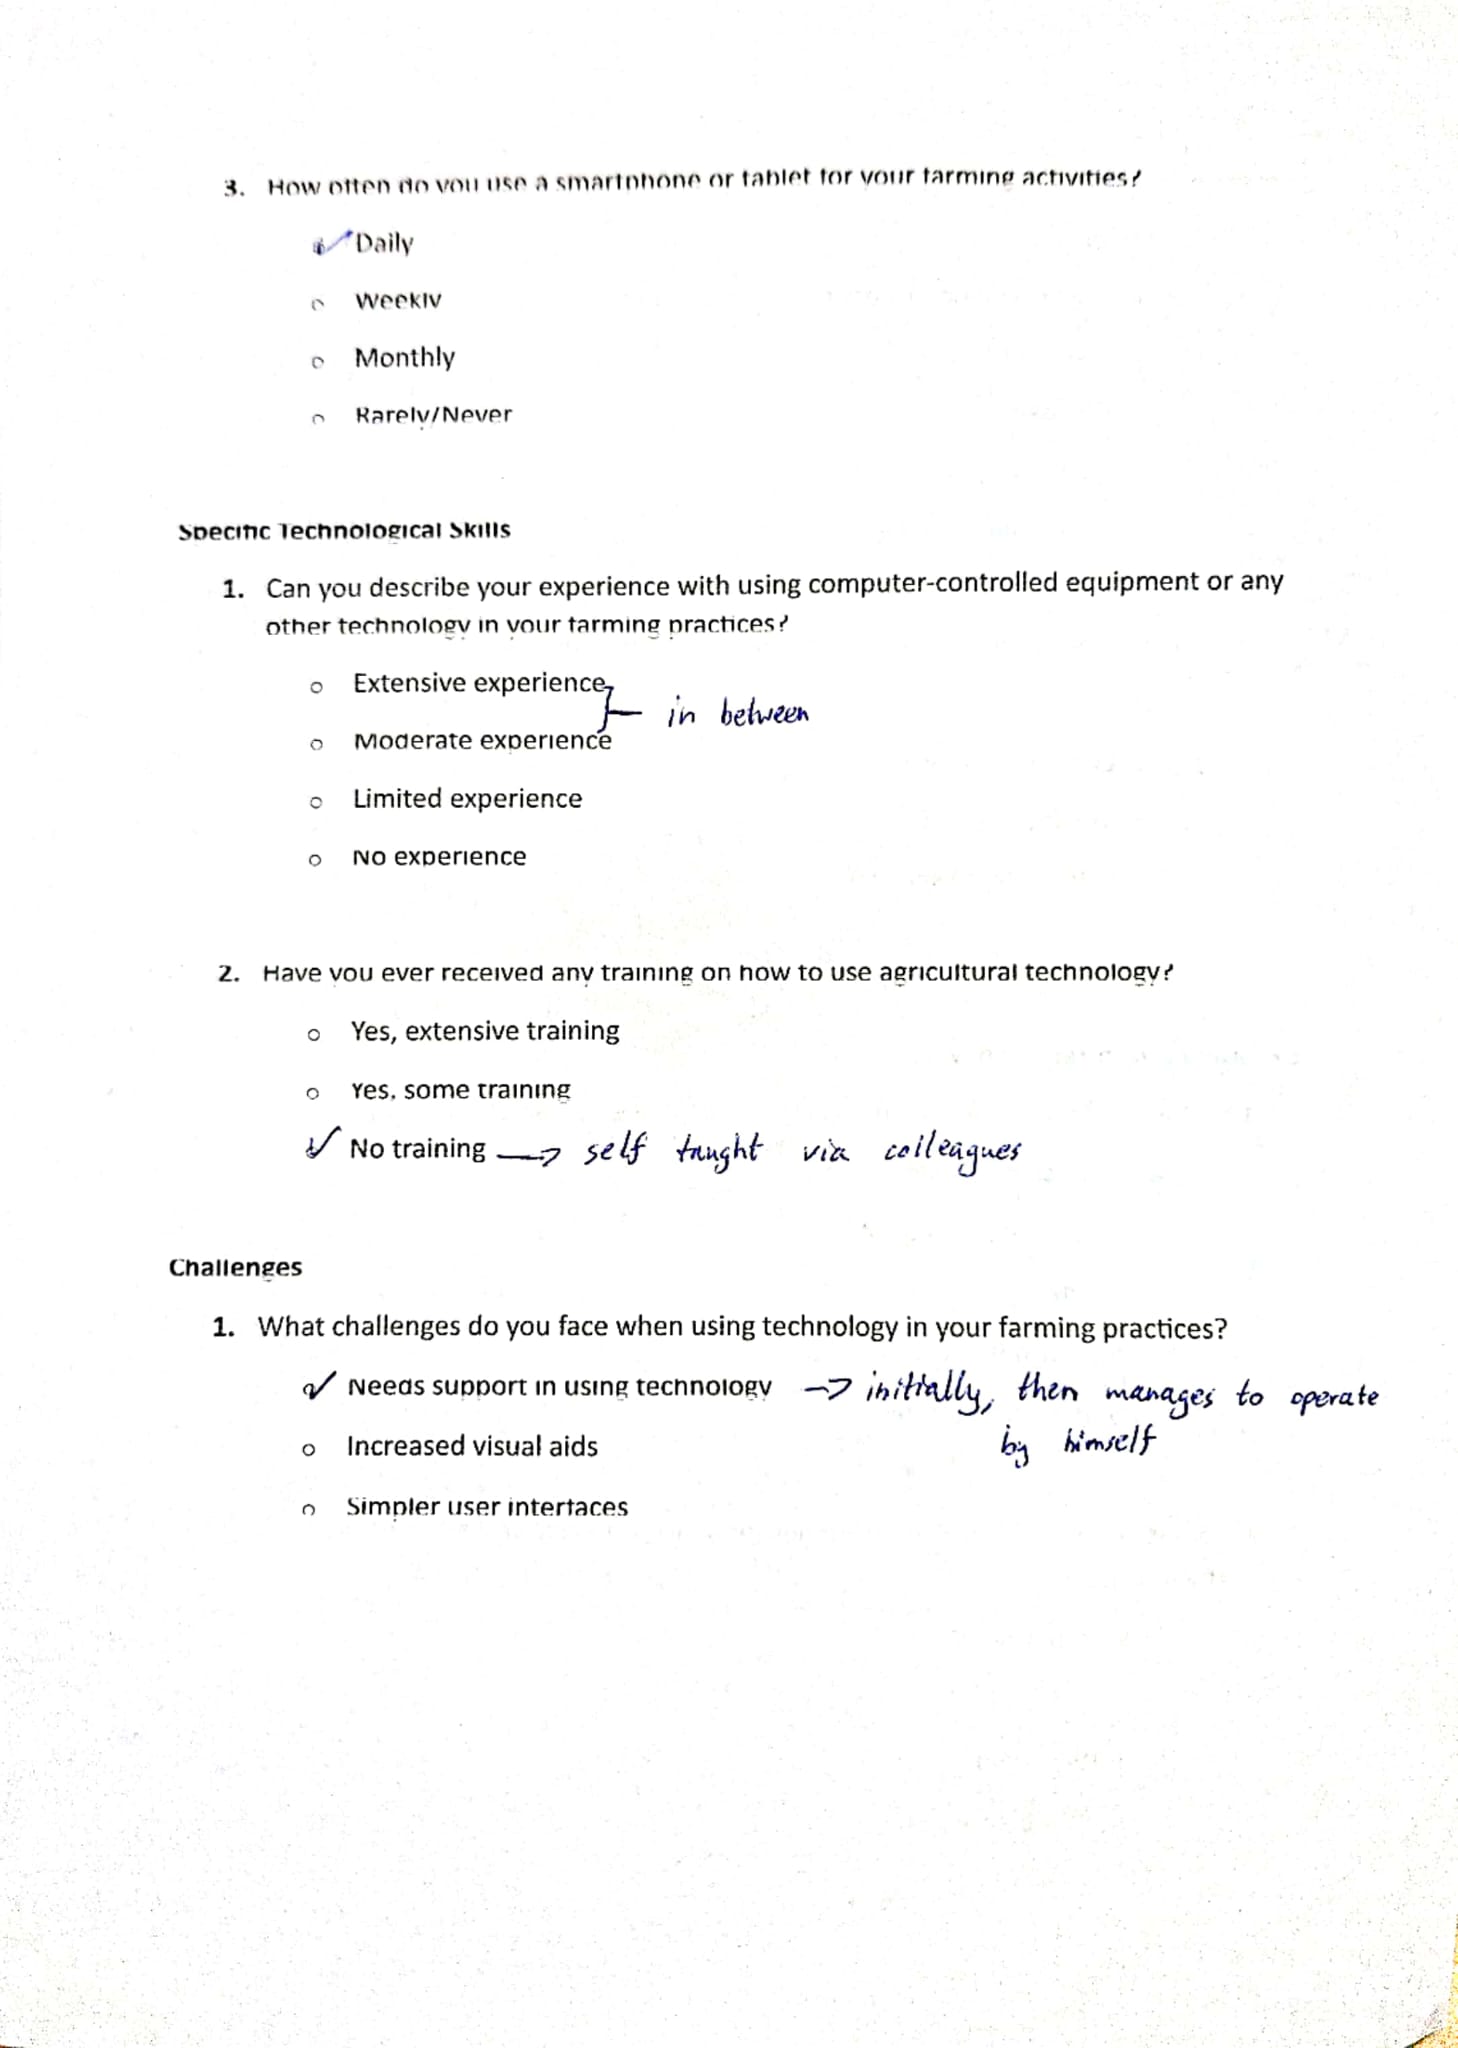 3. How often do you use a smartphone or tablet for your farming activities?
✓ Daily
o Weekly
o Monthly
o Rarely/Never
Specific Technological Skills
1. Can you describe your experience with using computer-controlled equipment or any
other technology in your farming practices?
o Extensive experience
in between
o Moderate experience
o Limited experience
o No experience
2. Have you ever received any training on how to use agricultural technology?
o Yes, extensive training
o Yes, some training
✓ No training → self taught via colleagues
Challenges
1. What challenges do you face when using technology in your farming practices?
✓ Needs support in using technology → initially, then manages to operate
by himself
o Increased visual aids
o Simpler user interfaces